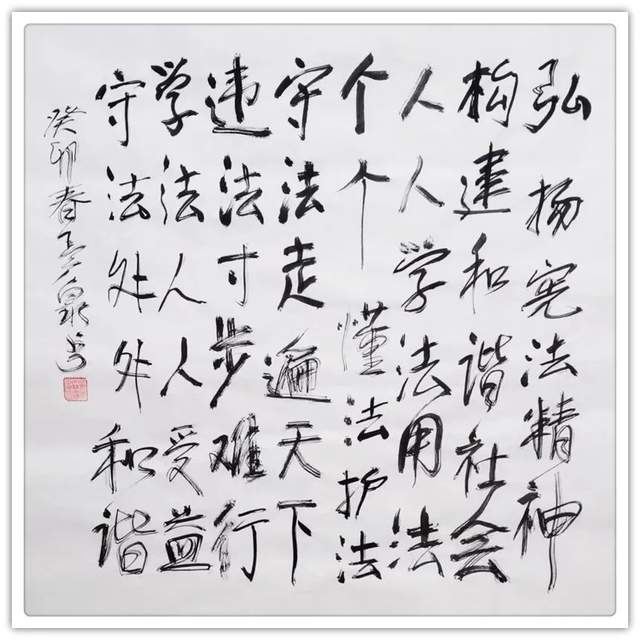 弘扬宪法精神
构建和谐社会
人人学法用法
个个懂法护法
守法走遍天下
违法寸步难行
学法人人受益
守法处处和谐
癸卯春